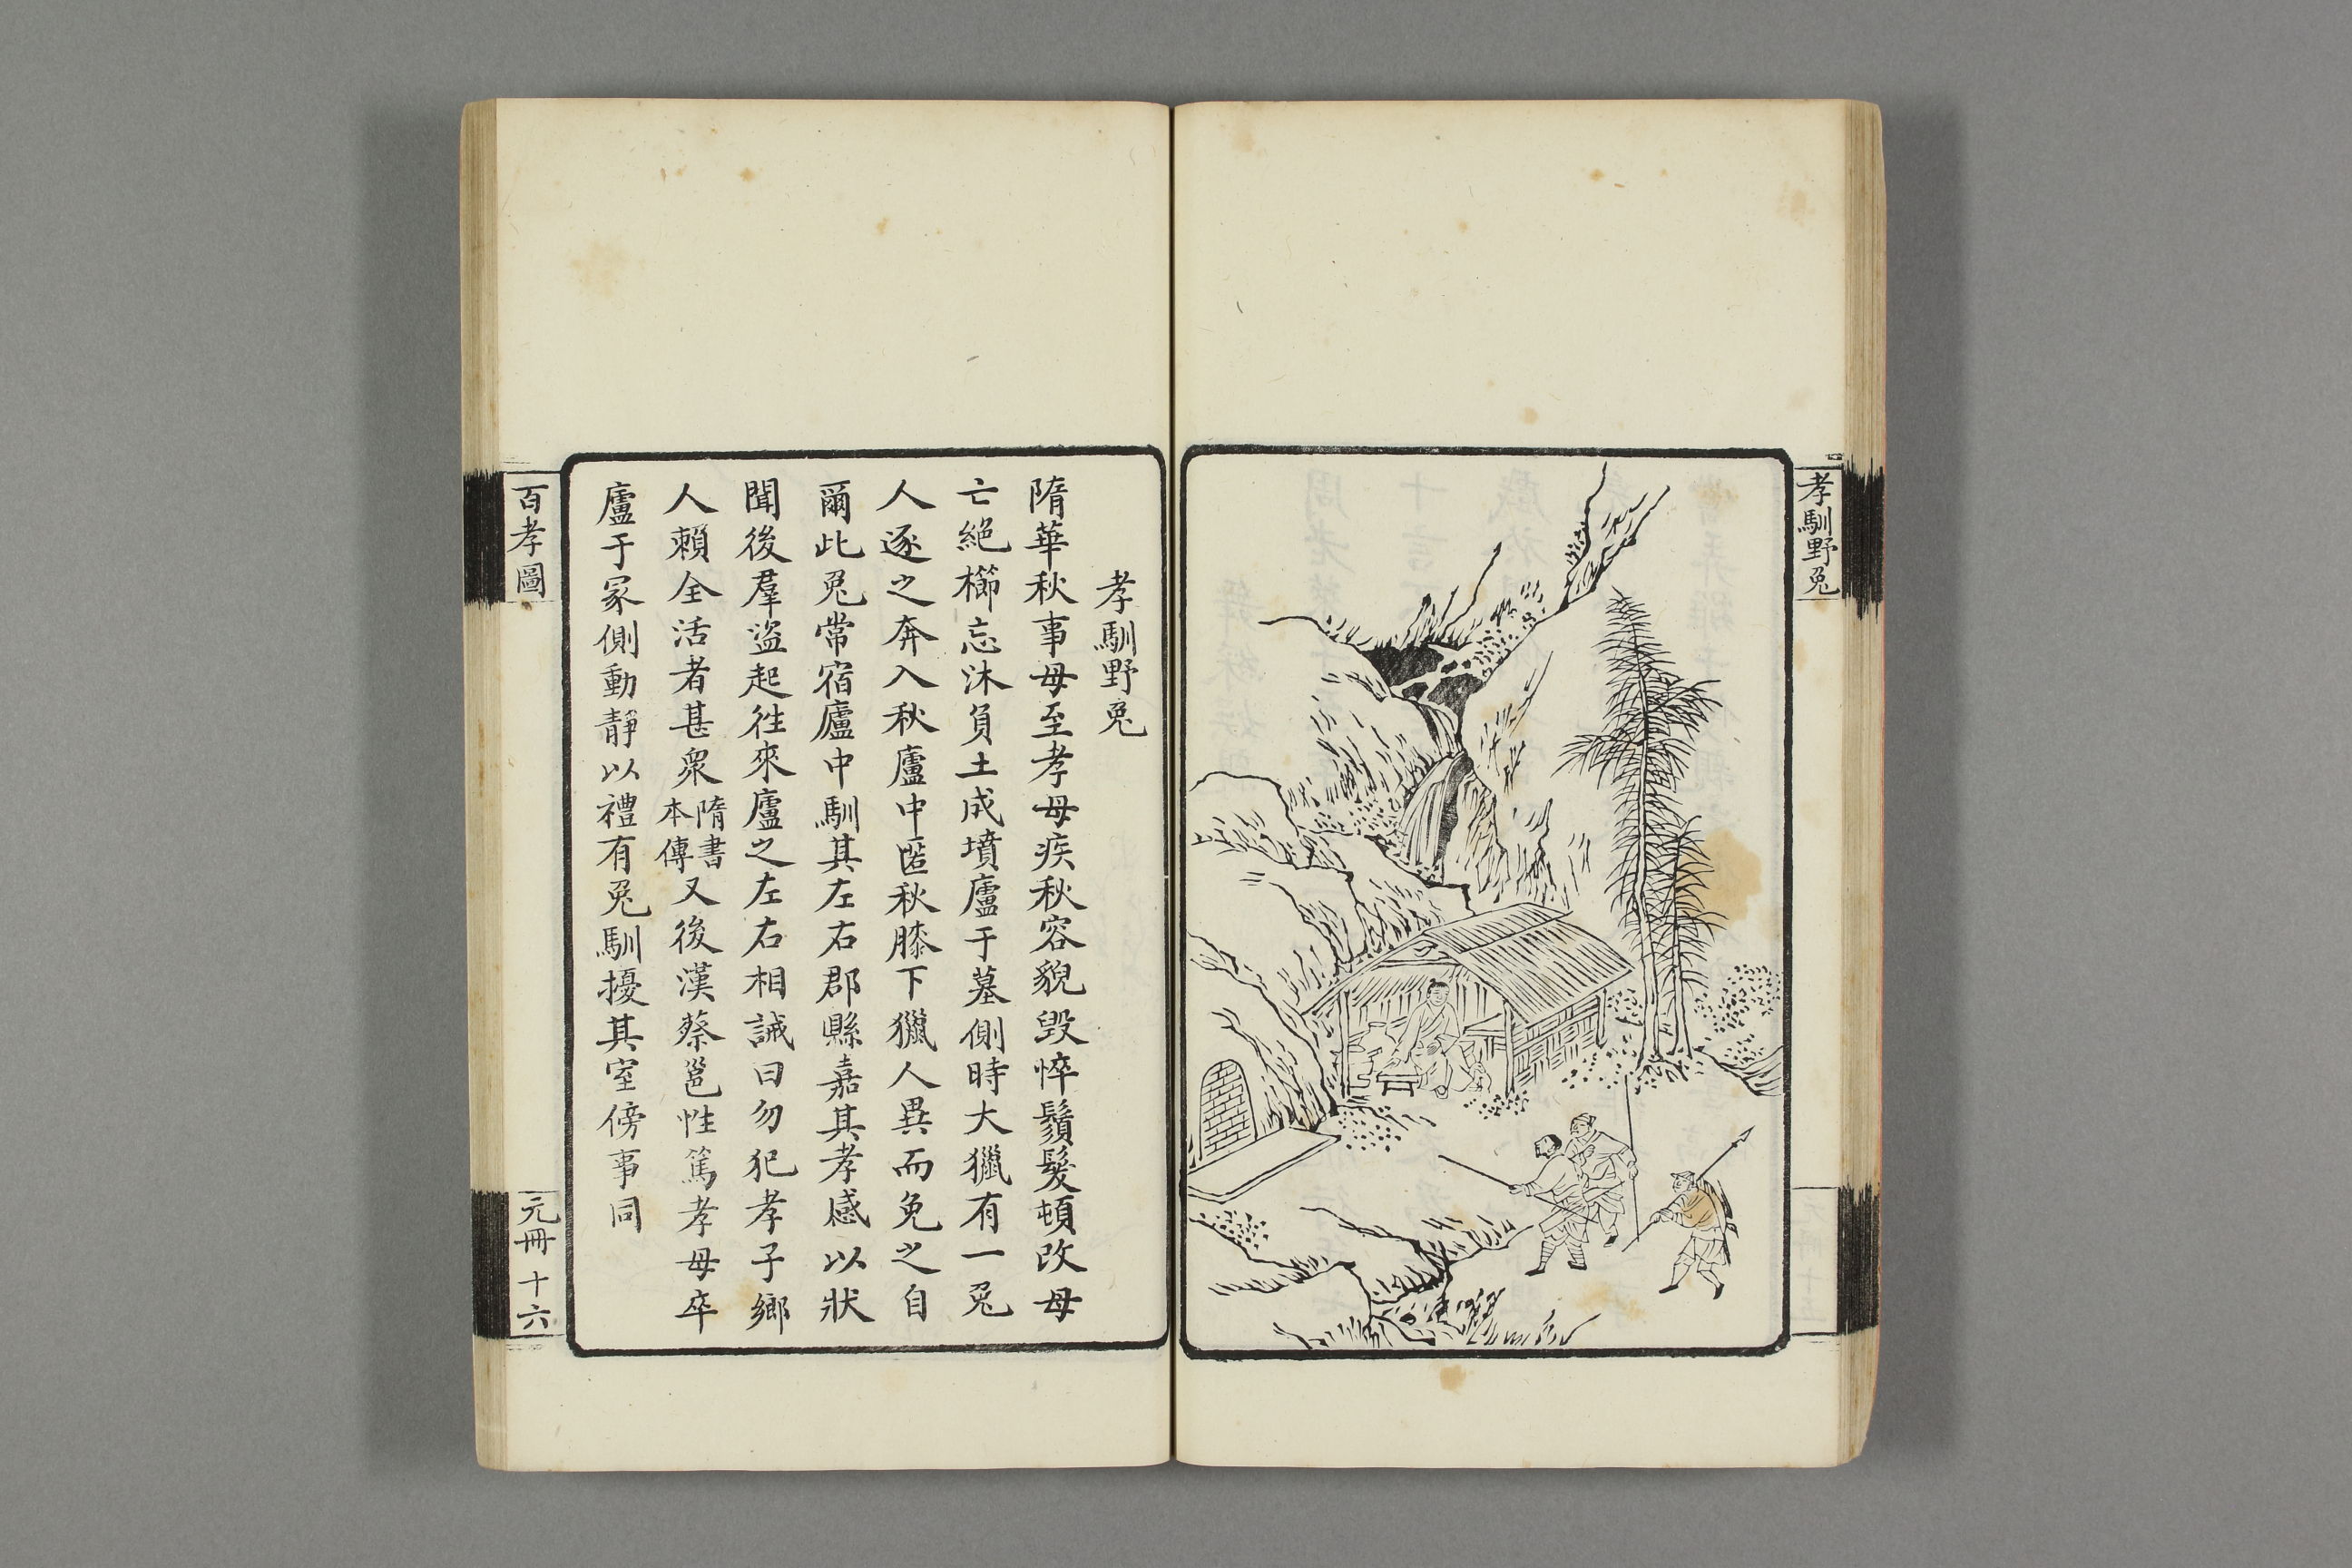 孝馴野兔
孝馴野兔
隋華秋事母至孝母疾秋容貌毁悴鬚髮頓改母
亡絕櫛忘沐負土成墳廬于墓側時大獵有一兔
人逐之奔入秋廬中匿秋膝下獵人異而免之自
爾此兔常宿廬中馴其左右郡縣嘉其孝感以狀
聞後羣盜起徃來廬之左右相誡曰勿犯孝子鄉
人賴全活者甚衆隋書本傳又後漢蔡邕性篤孝母卒
廬于冢側動靜以禮有兔馴擾其室傍事同
百孝圖
元冊 十六